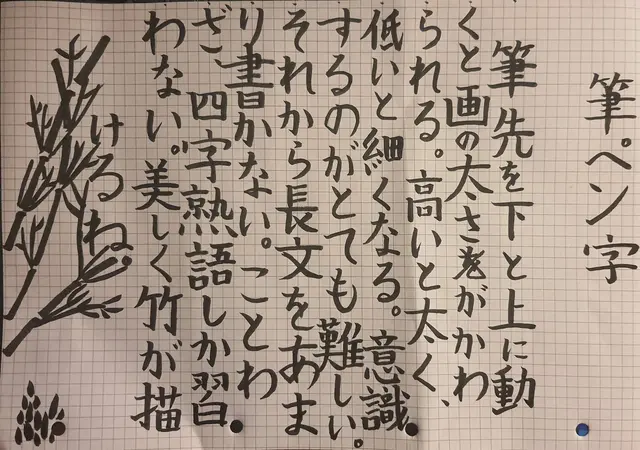 筆ペン字
筆先を下と上に動
くと画の太さをがかわ
られる。高いと太く、
低いと細くなる。意識
するのがとても難しい。
それから長文をあま
り書かない。ことわ
ざ、四字熟語しか習
わない。美しく竹が描
けるね。